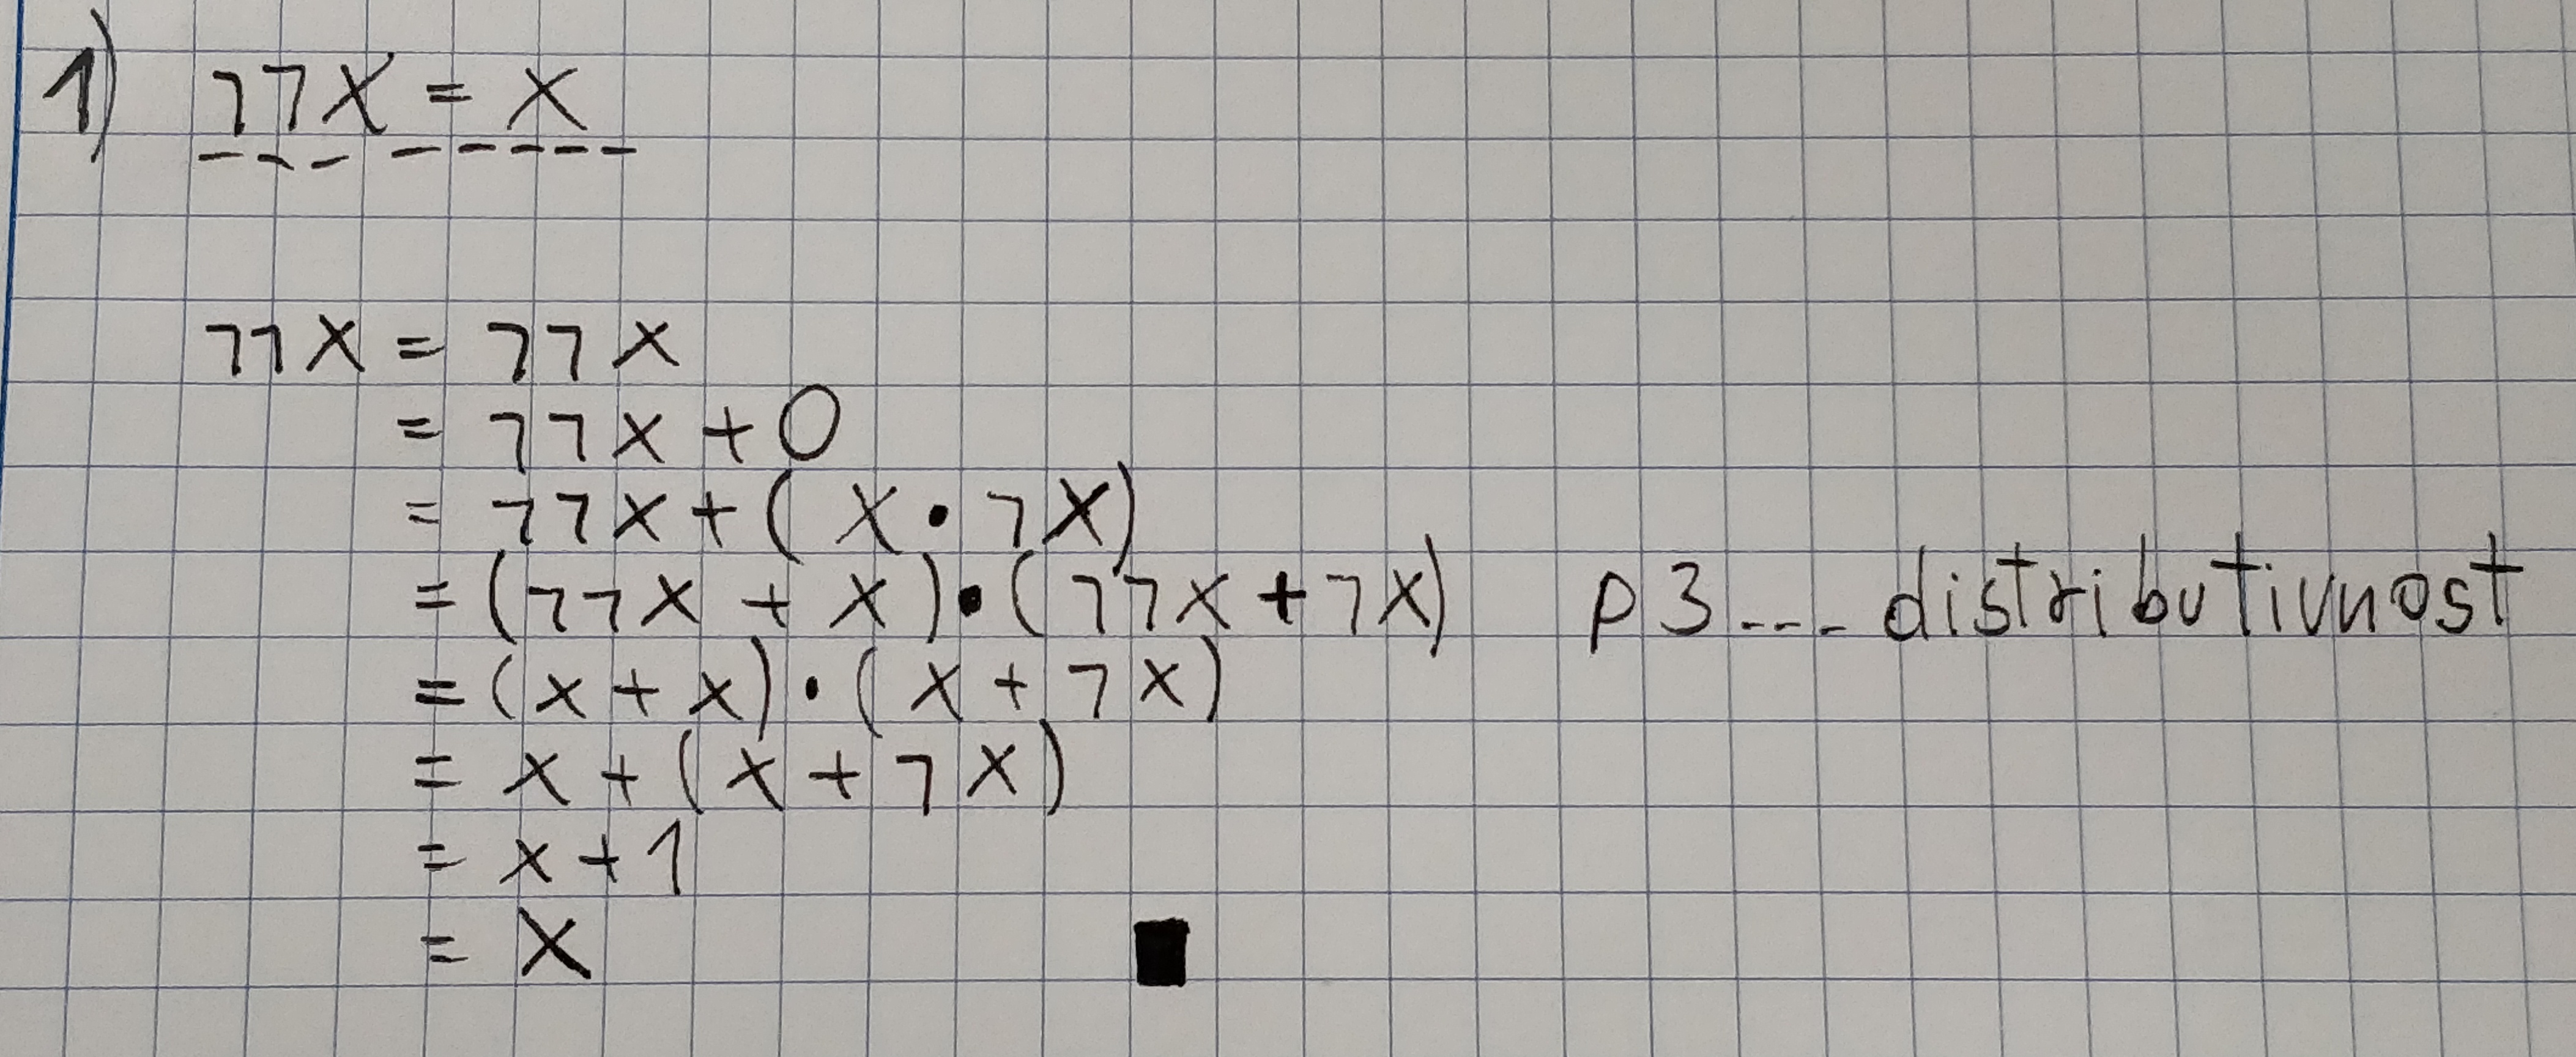 1) ¬¬X = X
¬¬X = ¬¬X
= ¬¬X + 0
= ¬¬X + (X • ¬X)
= (¬¬X + X) • (¬¬X + ¬X) p3... distributivnost
= (X + X) • (X + ¬X)
= X + (X + ¬X)
= X + 1
= X